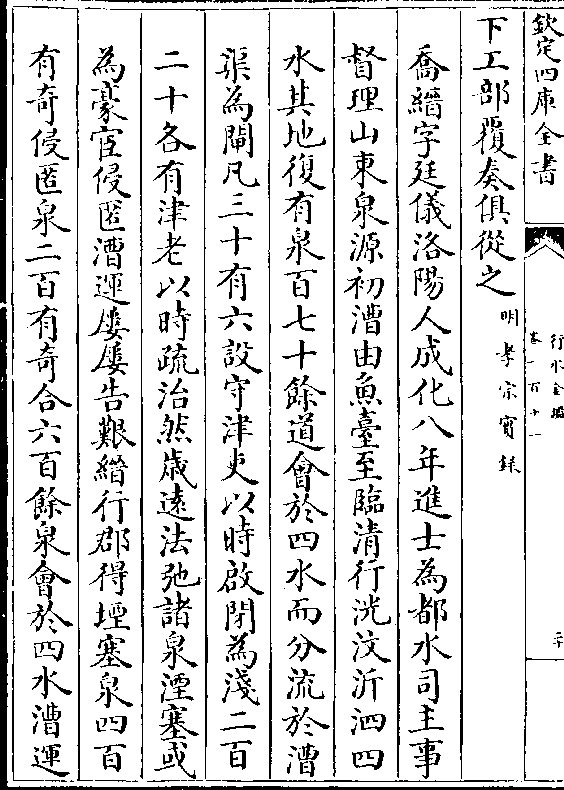 欽定四庫全書
行水金鑑
卷一百十一
二十
下工部覆奏俱從之 明孝宗實錄
喬縉字廷儀洛陽人成化八年進士為都水司主事
督理山東泉源初漕由魚臺至臨清行洸汶沂泗四
水其地復有泉百七十餘道會於四水而分流於漕
渠為閘凡三十有六設守津吏以時啟閉為淺二百
二十各有津老以時疏治然歲遠法弛諸泉湮塞或
為豪宦侵匿漕運屢屢告艱縉行郡得堙塞泉四百
有奇侵匿泉二百有奇合六百餘泉會於四水漕運